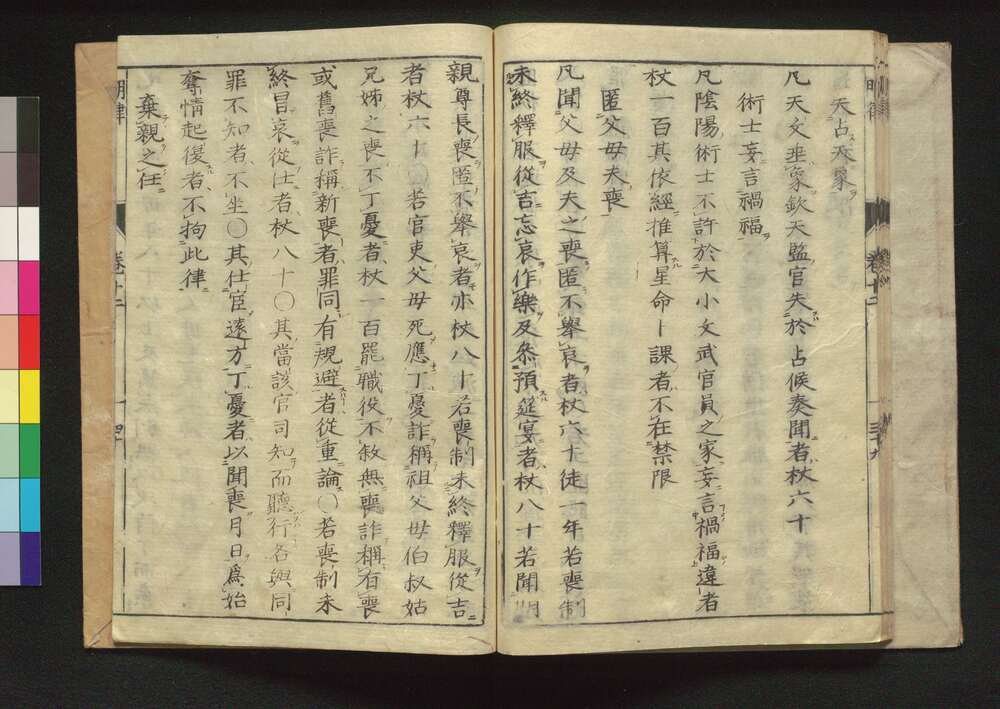 失占天象
凡天文垂象欽天監官失於占候奏聞者杖六十
術士妄言禍福
凡陰陽術士不許於大小文武官員之家妄言禍福違者
杖一百其依經推算星命卜課者不在禁限
匿父母夫喪
凡聞父母及夫之喪匿不舉哀者杖六十徒一年若喪制
未終釋服從吉忘哀作樂及參預筵宴者杖八十若聞期
親尊長喪匿不舉哀者亦杖八十若喪制未終釋服從吉
者杖六十○若官吏父母死應丁憂詐稱祖父母伯叔姑
兄姊之喪不丁憂者杖一百罷職役不敘無喪詐稱有喪
或舊喪詐稱新喪者罪同有規避者從重論○若喪制未
終冒哀從仕者杖八十○其當該官司知而聽行各與同
罪不知者不坐○其仕宦遠方丁憂者以聞喪月日爲始
奪情起復者不拘此律
棄親之任
明律
卷十二
四十
明律
卷十二
三十九